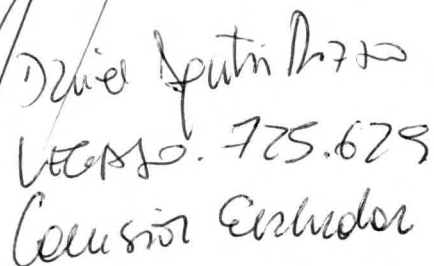 Daniel Agustin Rozzo
LEGAJO. 725.629
Comisión Evaluadora